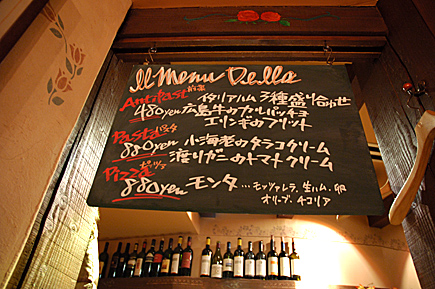 Il Menu Della
Antipast 前菜 イタリアハム 3種盛り合わせ
480yen 広島牛のカルパッチョ
エリンギのフリット
Pasta パスタ 小海老のタラコクリーム
880yen 渡りガニのトマトクリーム
Pizza ピッツァ
880yen モンタ…モッツァレラ、生ハム、卵
オリーブ、チコリア